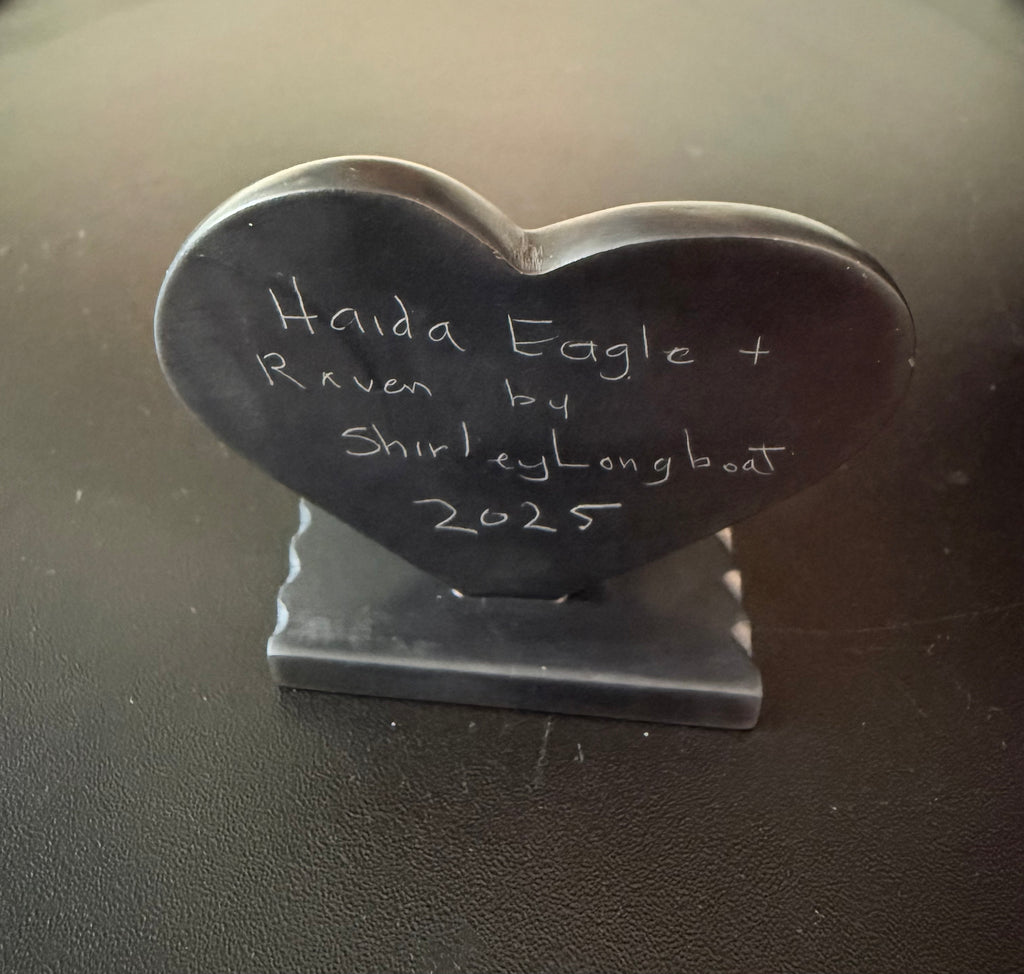 Haida Eagle +
Raven by
Shirley Longboat
2025